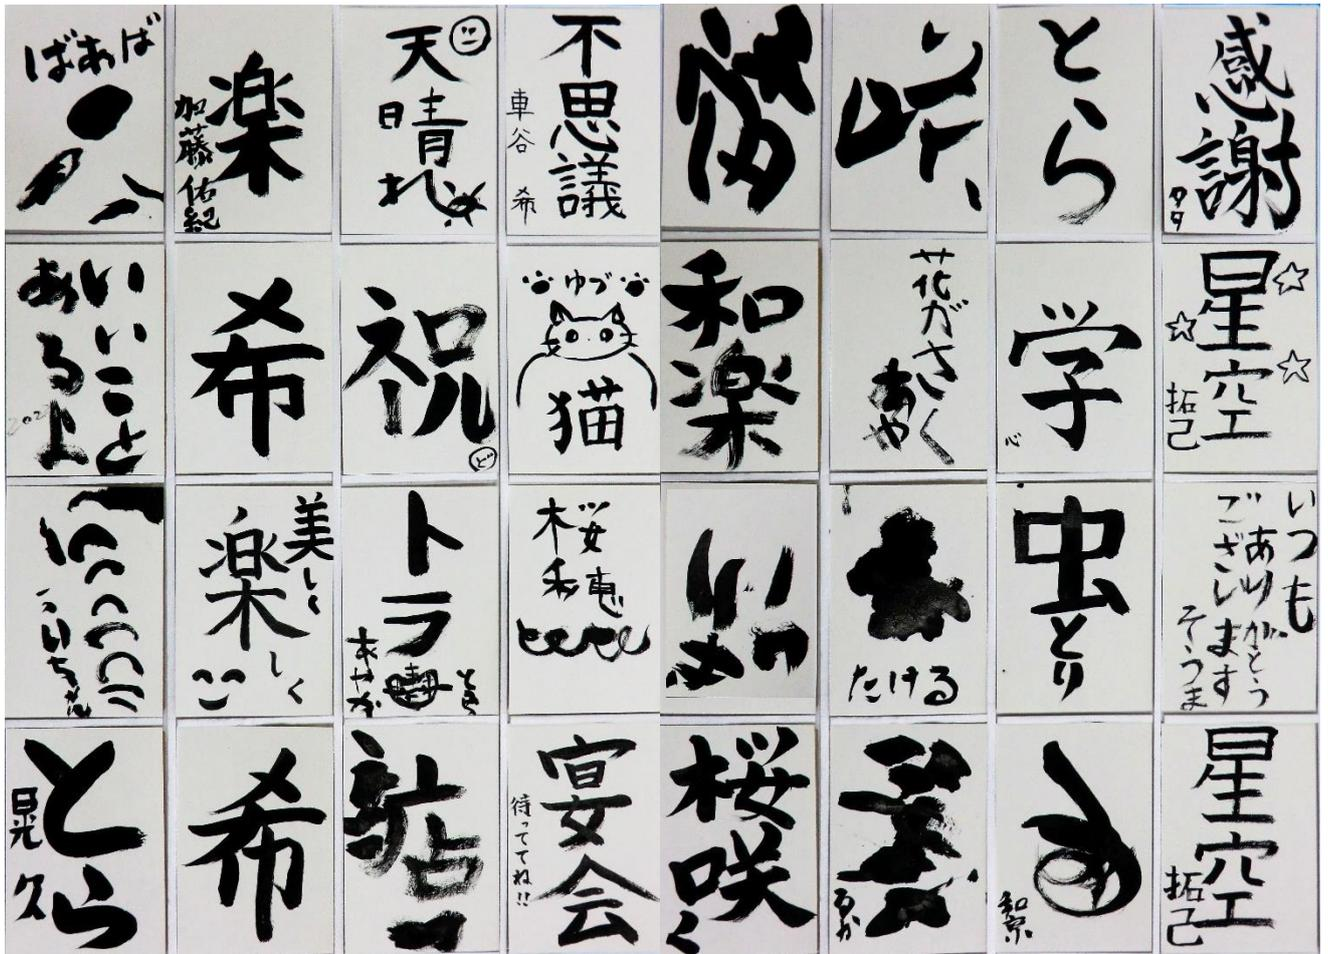 ばあば
楽
加藤佑紀
天晴れ
不思議
車谷 希
峠
とら
感謝
タタ
いいこと
あるよ
希
祝
ど
ゆづ
猫
和楽
花がさく
あや
学
心
星空
拓己
こいちゃん
美しく
楽しく
トラ
あやか
とら
桜
和恵
たける
虫とり
いつも
ありがとう
ございます
そうま
とら
晃久
希
宴会
待っててね!!
桜咲く
るか
和京
星空
拓己